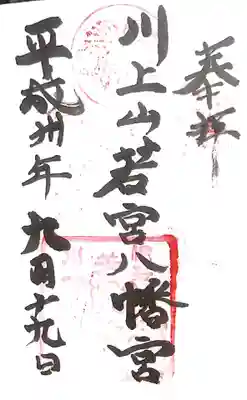 奉拝
川上山若宮八幡宮
平成卅年 九月十九日